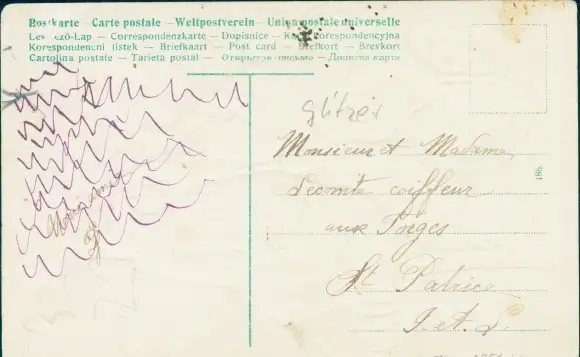 Postkarte – Carte postale – Weltpostverein – Union postale universelle
Levelező-Lap – Correspondenzkarte – Dopisnice – Karta korespondencyjna
Korespondencni listek – Briefkaart – Post card – Brefkort – Brevkort
Cartolina postale – Tarjeta postal – Открытое письмо – Дописна карта
glitzer
Monsieur et Madame
Lecomte coiffeur
aux Forges
St Patrice
I. et L.
186.